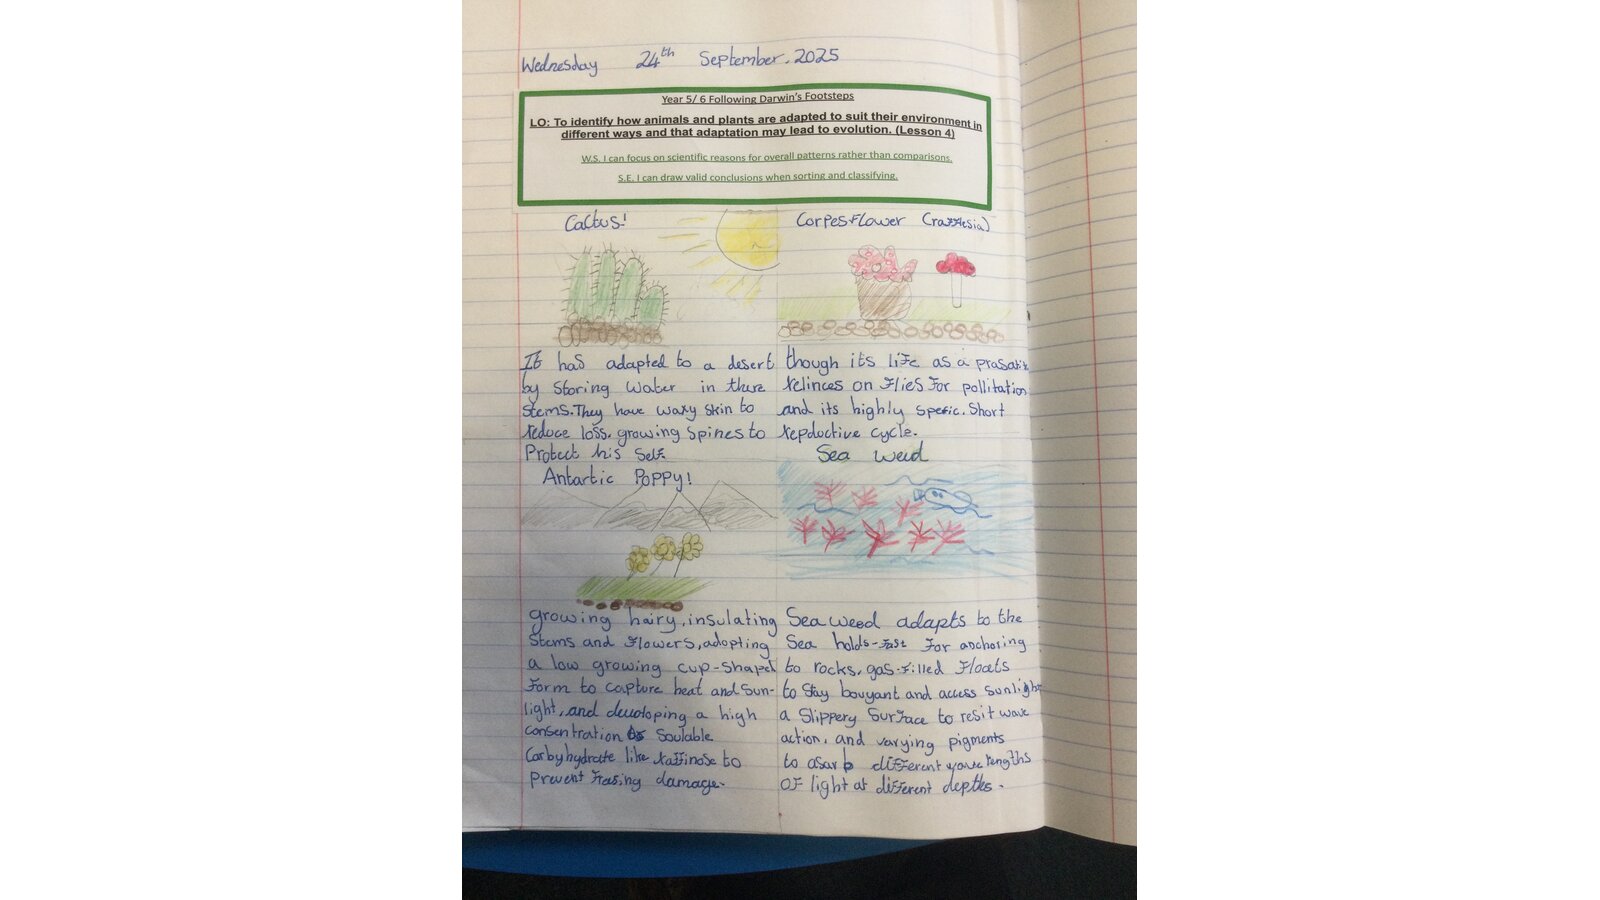 Wednesday 24th September. 2025
Year 5/ 6 Following Darwin's Footsteps
LO: To identify how animals and plants are adapted to suit their environment in
different ways and that adaptation may lead to evolution. (Lesson 4)
W.S. I can focus on scientific reasons for overall patterns rather than comparisons.
S.E. I can draw valid conclusions when sorting and classifying.
Cactus!
It has adapted to a desert
by storing water in there
stems. They have waxy skin to
reduce loss. growing spines to
Protect his self.
Corpes flower (rafflesia)
though its life as a prasatie
relinces on flies for pollitation
and its highly spefic. Short
repductive cycle.
Antartic Poppy!
growing hairy, insulating
stems and flowers, adopting
a low growing cup-shaped
form to capture heat and sun-
light, and devoloping a high
consentration of soulable
Carbyhydrate like raffinose to
prevent freesing damage.
Sea weid
Sea weed adapts to the
Sea holds-fast for anchoring
to rocks, gas-filled floats
to stay bouyant and access sunlight
a slippery surface to resit wave
action, and varying pigments
to asarb different wave lengths
of light at different depths.